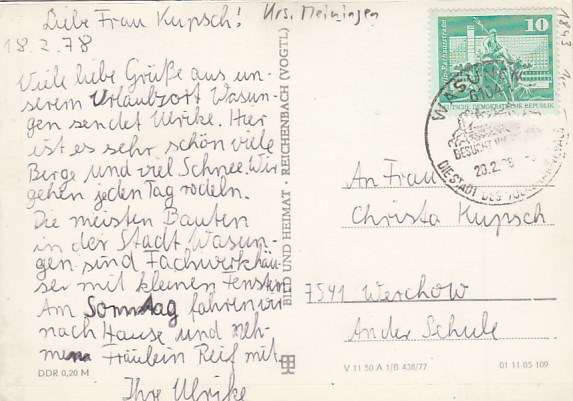 Liebe Frau Kupsch!
Krs. Meiningen
18.2.78
Viele liebe Grüße aus un-
serem Urlaubsort Wasun-
gen sendet Ulrike. Hier
ist es sehr schön viele
Berge und viel Schnee. Wir
gehen jeden Tag rodeln.
Die meisten Bauten
in der Stadt Wasun-
gen sind Fachwerkhäu-
ser mit kleinen Fenstern
Am Sonntag fahren wir
nach Hause und neh-
men Fräulein Reif mit
Ihre Ulrike
DDR 0,20 M
BILD UND HEIMAT · REICHENBACH (VOGTL)
10
DEUTSCHE DEMOKRATISCHE REPUBLIK
WASUNGEN
BESUCHT
20.2.78
DIE STADT DES
1843
An Frau
Christa Kupsch
7541 Werchow
An der Schule
V 11 50 A 1/B 438/77
01 11 05 109